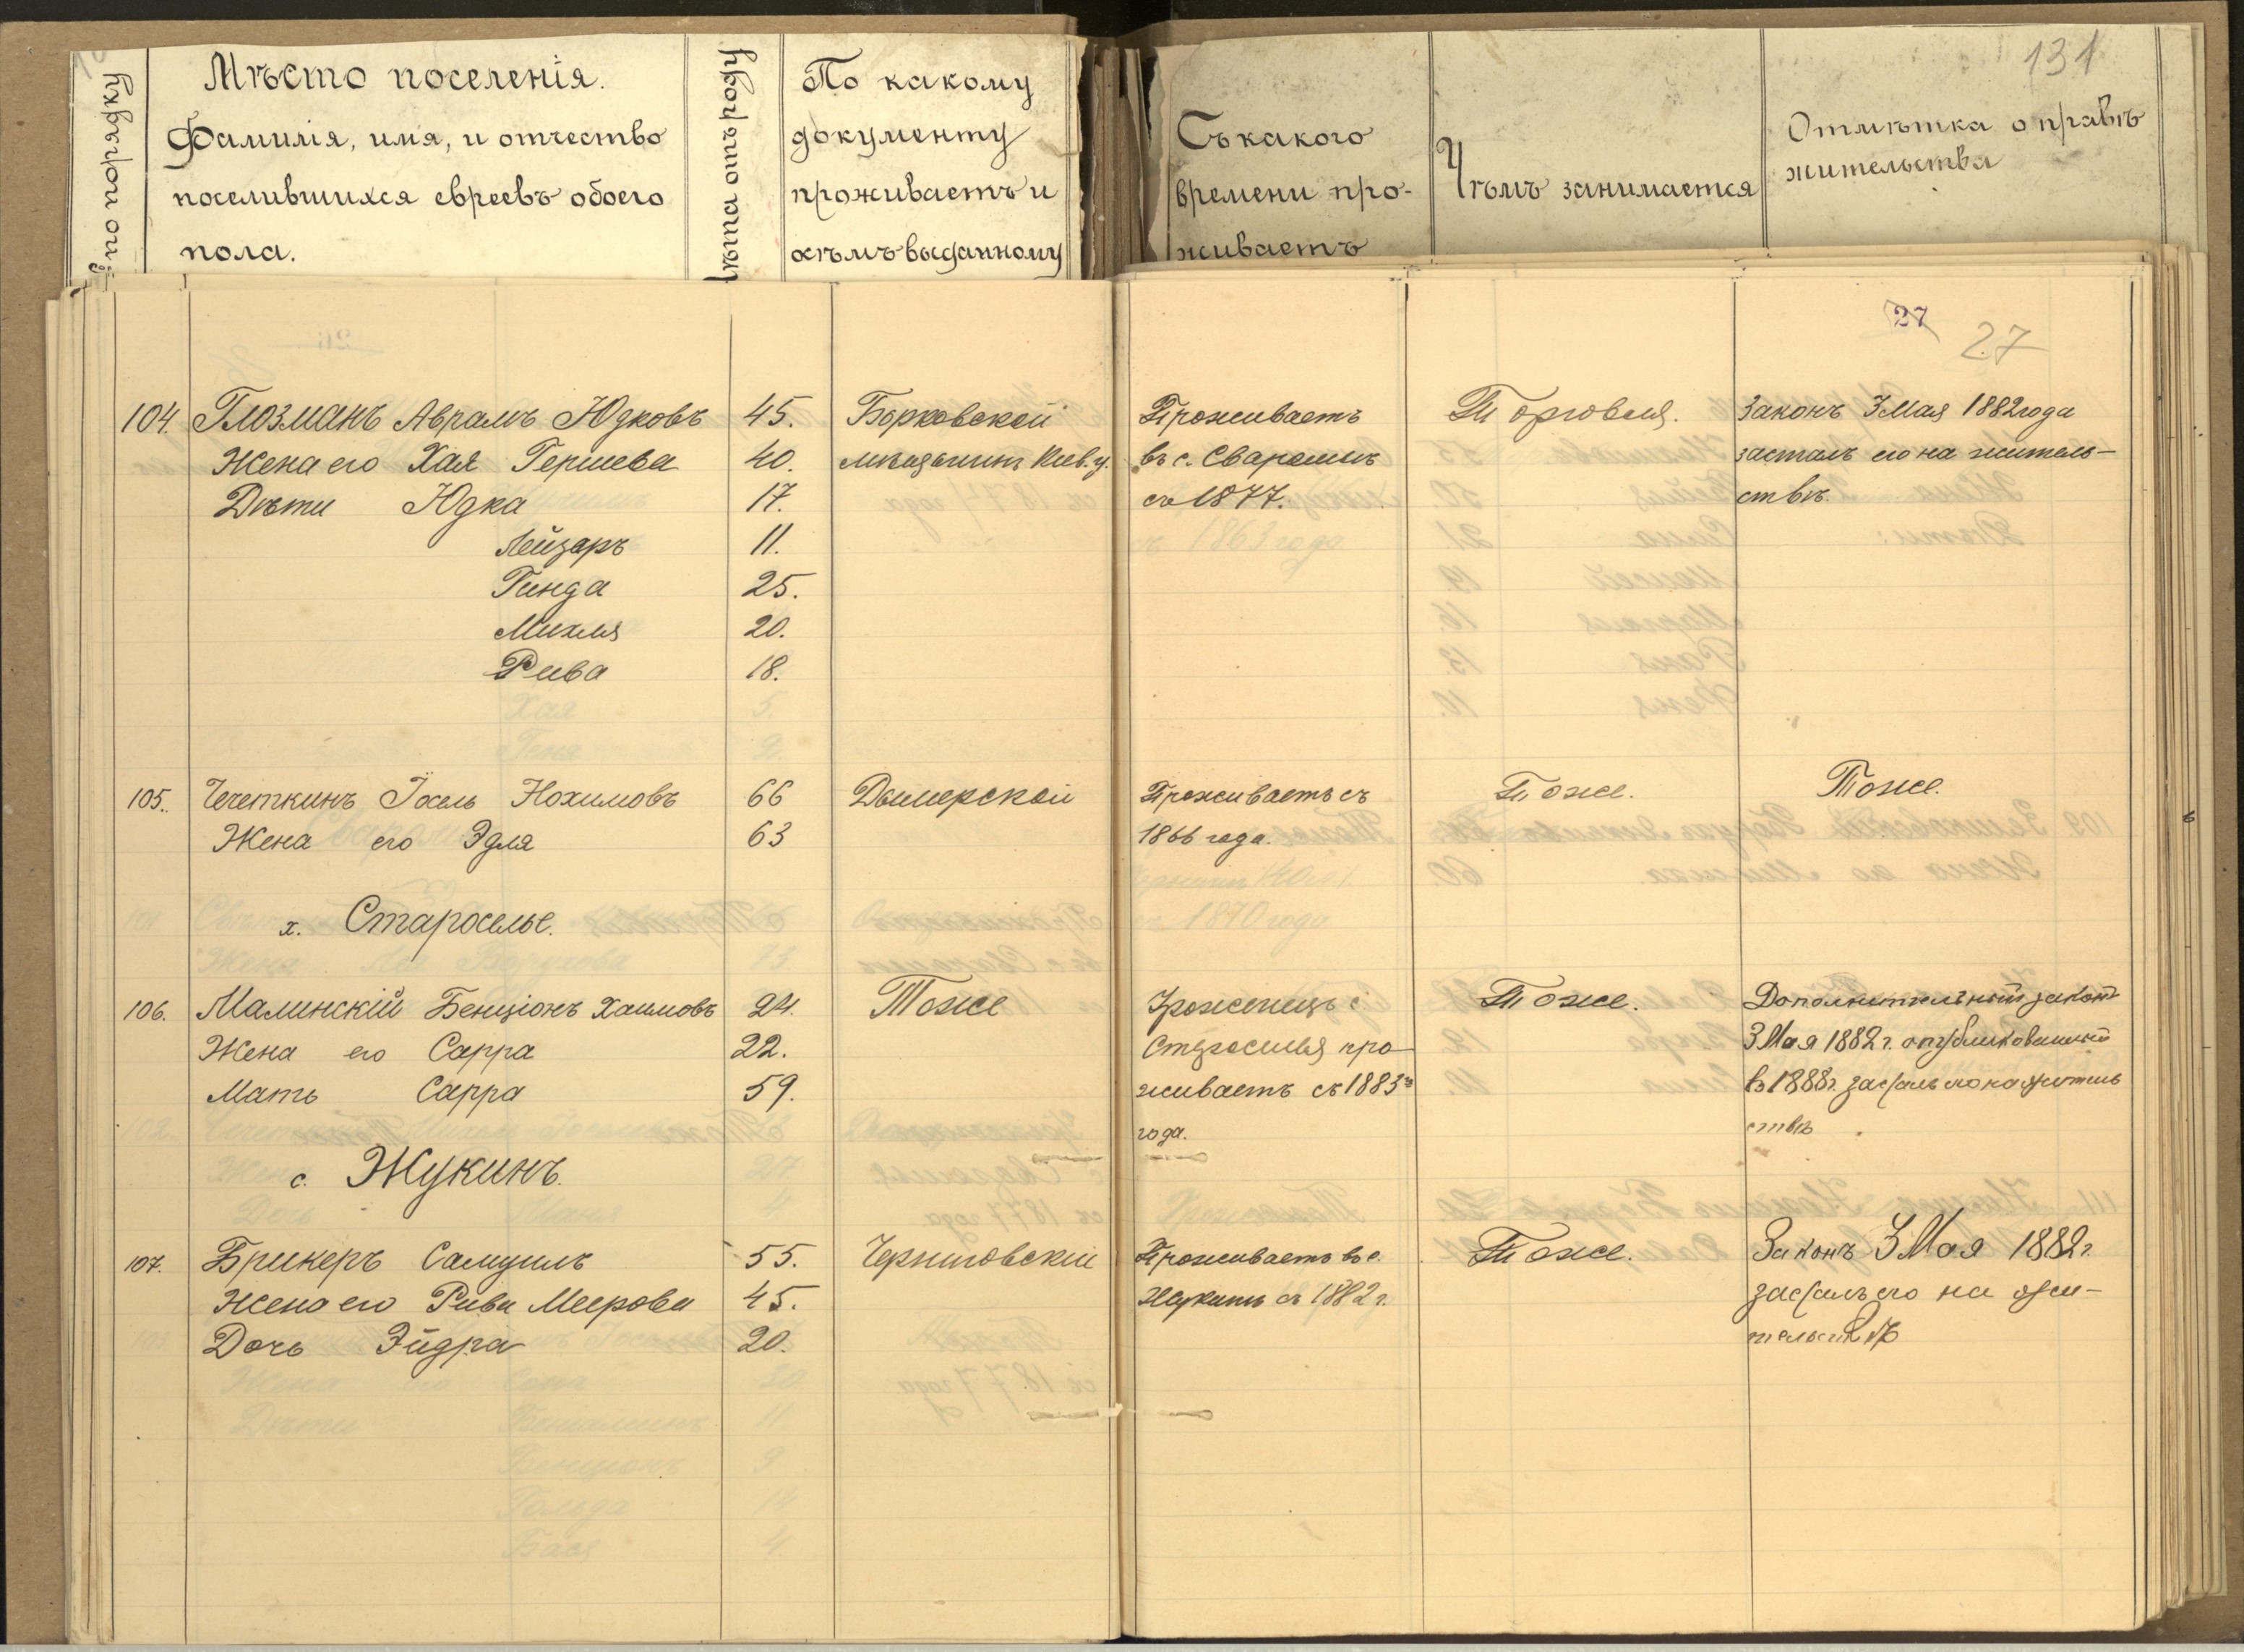 131
№ по порядку
Мѣсто поселенія.
Фамилія, имя, и отчество
поселившихся евреевъ обоего
пола.
Лѣта отъ роду
По какому
документу
проживаетъ и
кѣмъ выданному
Съ какого
времени про-
живаетъ
Чѣмъ занимается
Отмѣтка о правѣ
жительства
27
27
104. Глозманъ Аврамъ Юдковъ 45. Борковской Проживаетъ Торговля. Законъ 3 Мая 1882 года
Жена его Хая Гершева 40. мѣщанинъ Кіев. у. въ с. Сваромъ засталъ его на житель-
Дѣти Юдка 17. съ 1877. ствѣ.
Лейзаръ 11.
Гинда 25.
Михля 20.
Рива 18.
105. Чечеткинъ Іосель Нохимовъ 66 Дымерской Проживаетъ съ Тоже. Тоже.
Жена его Эдля 63 1866 года.
х. Староселье.
106. Малинскій Бенціонъ Хаимовъ 24. Тоже Уроженецъ с. Тоже. Дополнительный законъ
Жена его Сарра 22. Староселья про- 3 Мая 1882 г. опубликованный
Мать Сарра 59. живаетъ съ 1883 го въ 1888 г. засталъ его на житель
года. ствѣ
с. Жукинъ.
107. Брикеръ Самуилъ 55. Черниговскій Проживаетъ въ с. Тоже. Законъ 3 Мая 1882 г.
Жена его Рива Меерова 45. Жукинъ съ 1882 г. засталъ его на жи-
Дочь Эйдра 20. тельствѣ